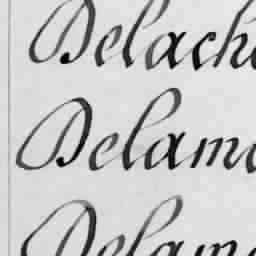 Delach
Delam
Delam